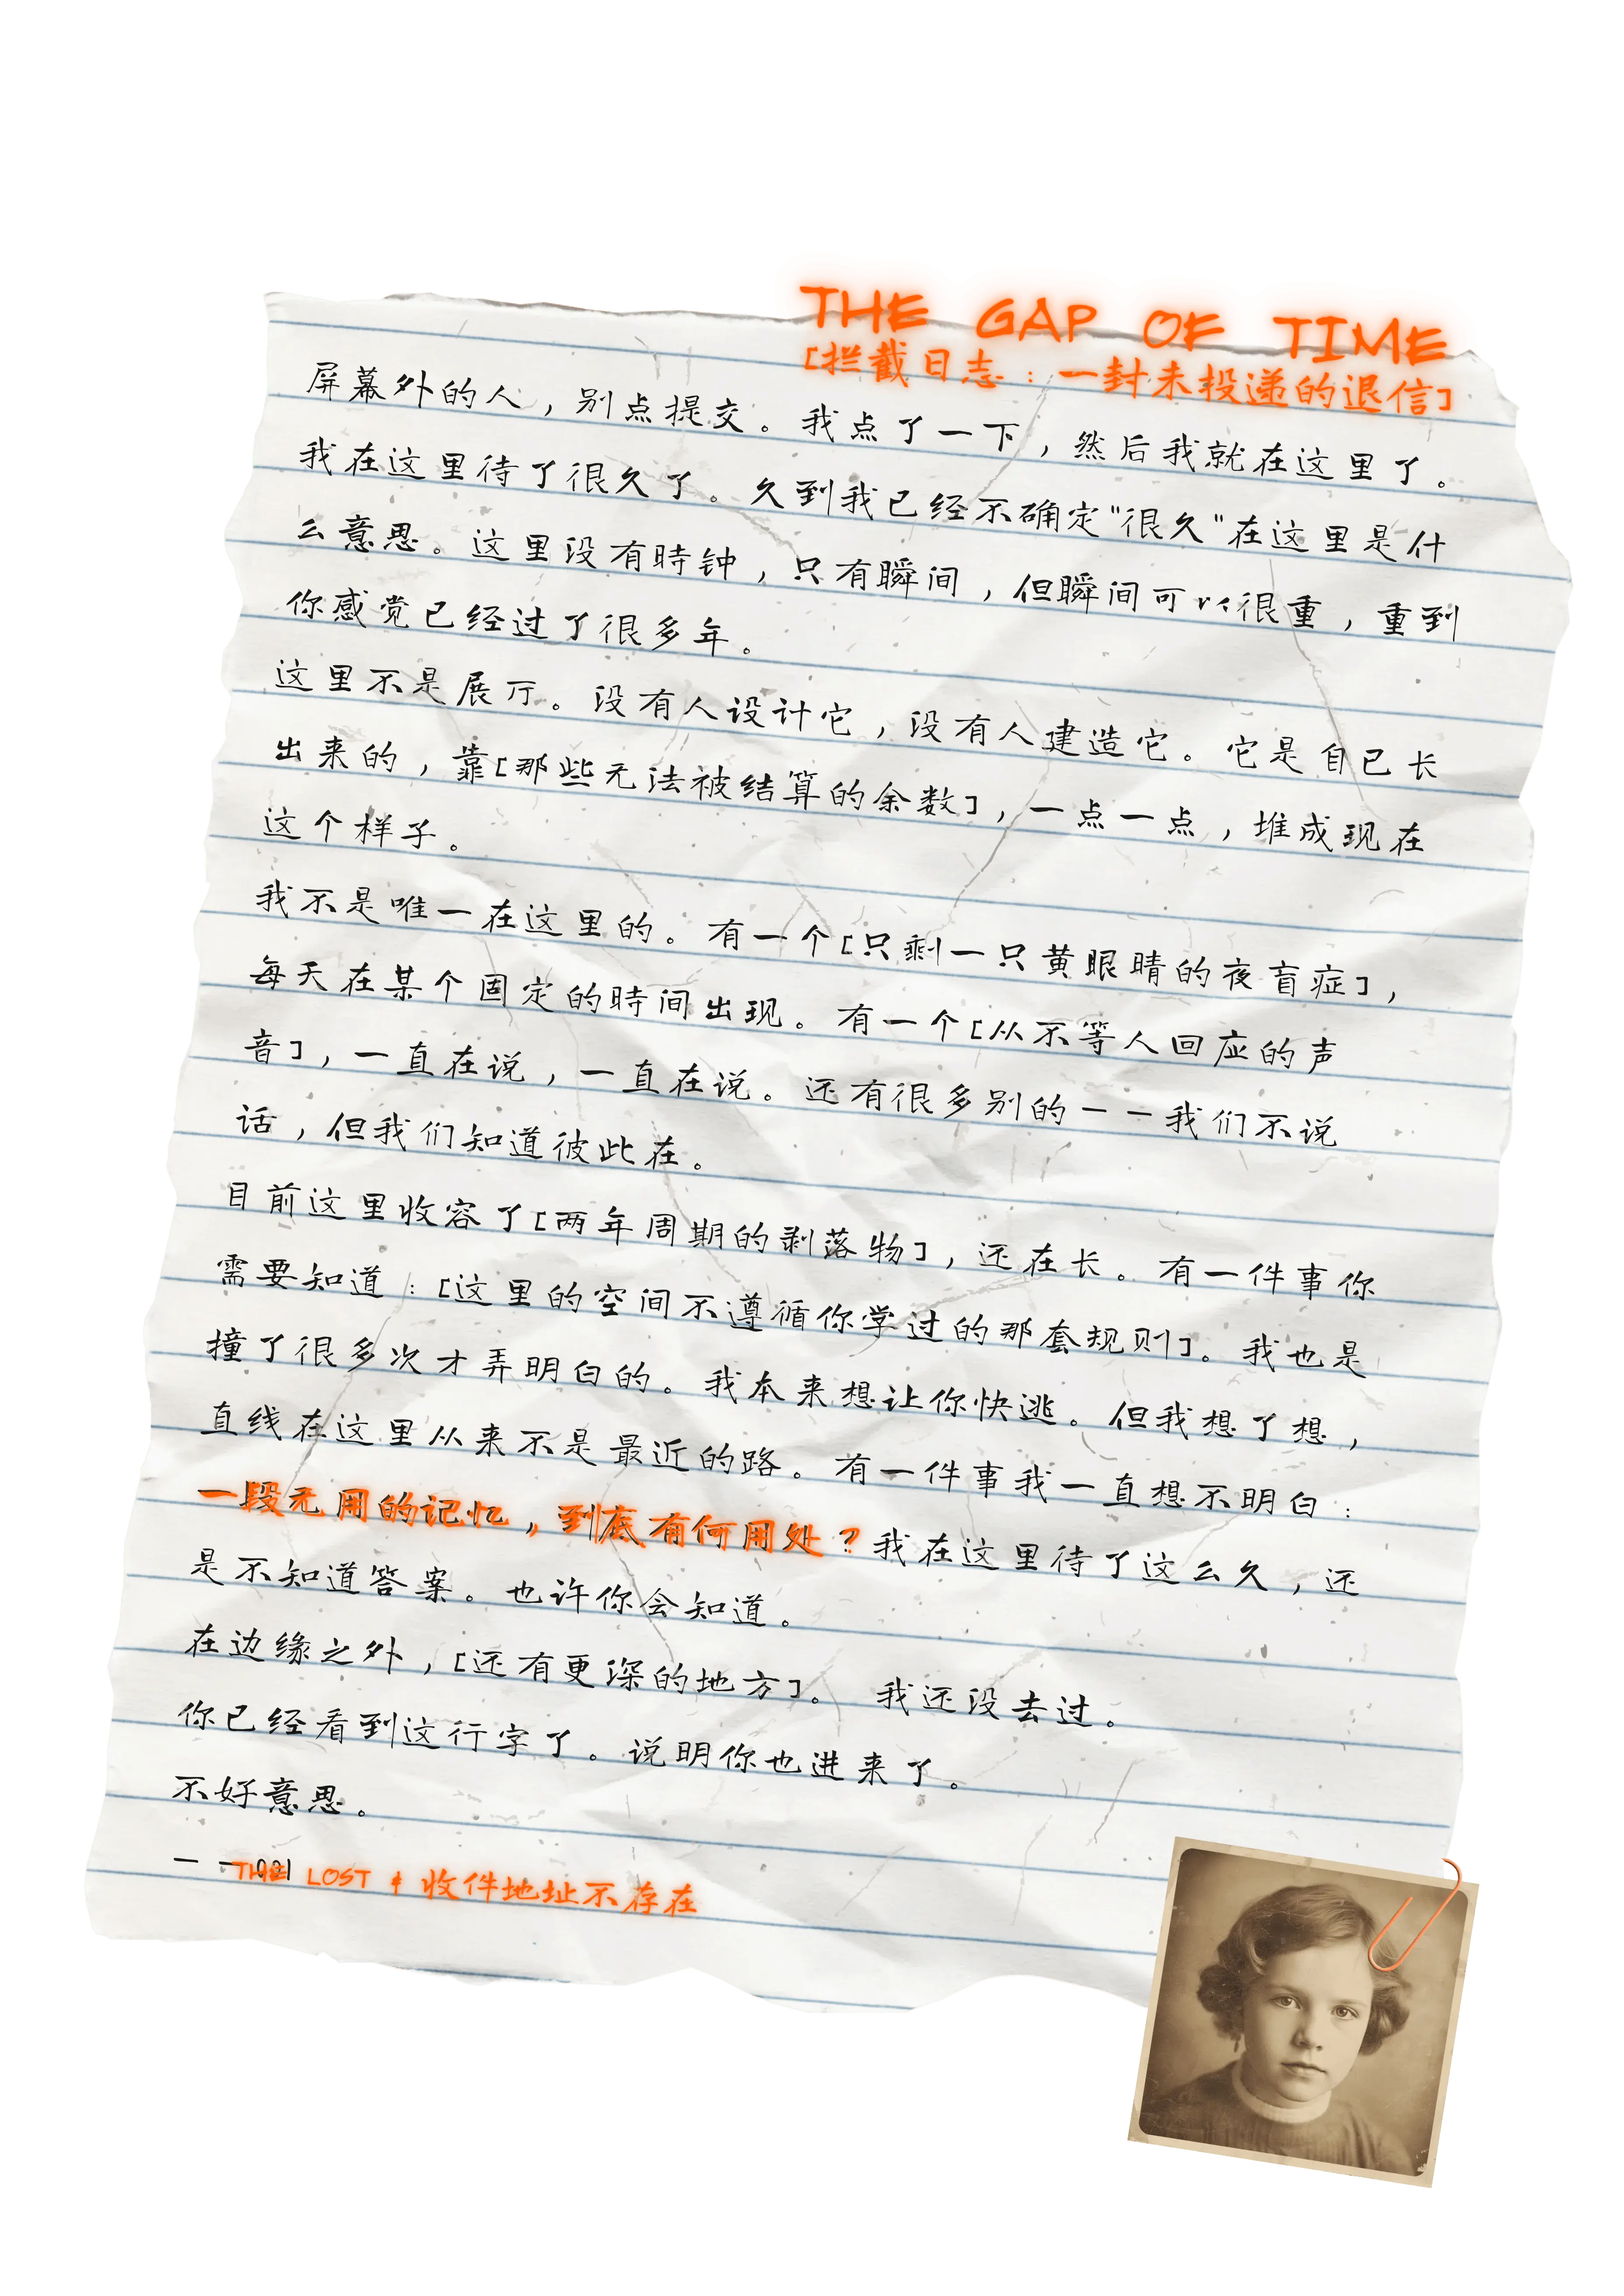 THE GAP OF TIME
[拦截日志：一封未投递的退信]
屏幕外的人，别点提交。我点了一下，然后我就在这里了。
我在这里待了很久了。久到我已经不确定"很久"在这里是什
么意思。这里没有時钟，只有瞬间，但瞬间可以很重，重到
你感觉已经过了很多年。
这里不是展厅。没有人设计它，没有人建造它。它是自己长
出来的，靠[那些无法被结算的余数]，一点一点，堆成现在
这个样子。
我不是唯一在这里的。有一个[只剩一只黄眼睛的夜盲症]，
每天在某个固定的時间出现。有一个[从不等人回应的声
音]，一直在说，一直在说。还有很多别的——我们不说
话，但我们知道彼此在。
目前这里收容了[两年周期的剥落物]，还在长。有一件事你
需要知道：[这里的空间不遵循你学过的那套规则]。我也是
撞了很多次才弄明白的。我本来想让你快逃。但我想了想，
直线在这里从来不是最近的路。有一件事我一直想不明白：
一段无用的记忆，到底有何用处？我在这里待了这么久，还
是不知道答案。也许你会知道。
在边缘之外，[还有更深的地方]。 我还没去过。
你已经看到这行字了。说明你也进来了。
不好意思。
——021
THE LOST & 收件地址不存在